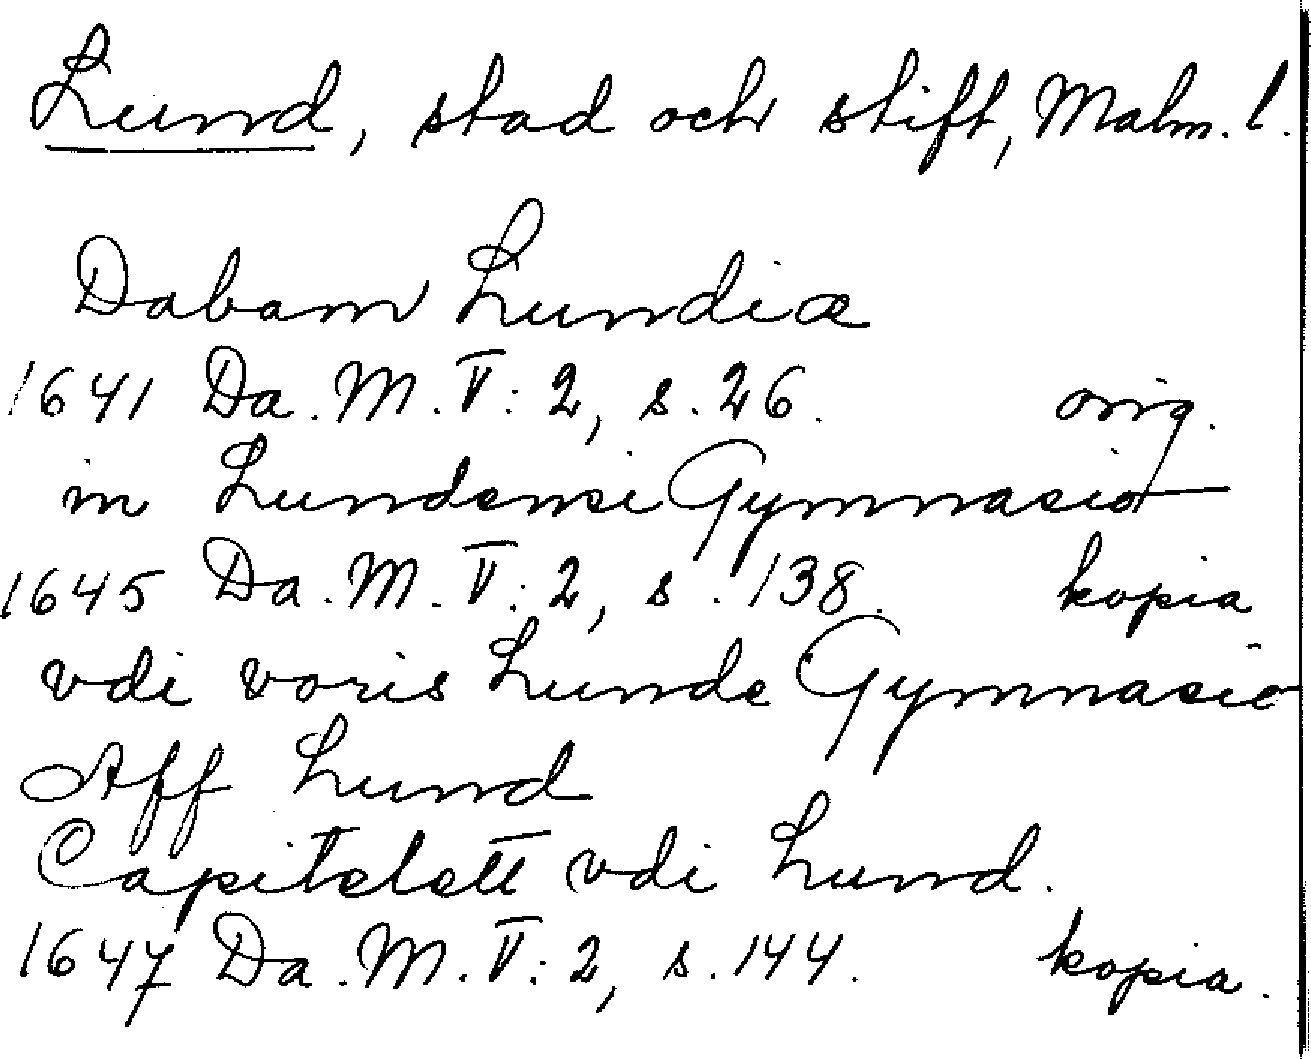 Lund, stad och stift, Malm. l.
Dabam Lundiæ
1641 Da. M. V: 2, s. 26. orig.
in Lundensi Gymnasio
1645 Da. M. V: 2, s. 138. kopia
vdi voris Lunde Gymnasio
Aff Lund
Capitelett vdi Lund.
1647 Da. M. V: 2, s. 144. kopia.